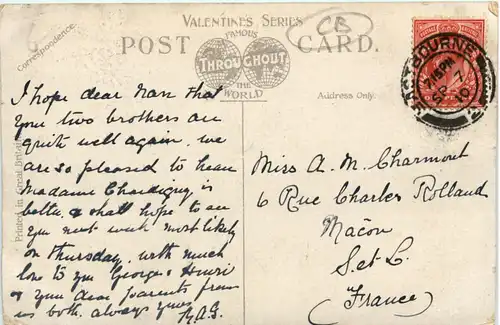 VALENTINE'S SERIES
CB
POST CARD.
FAMOUS
THROUGHOUT
THE
WORLD
Correspondence.
Address Only.
Printed in Great Britain
EASTBOURNE
7.15 PM
SP 7
10
I hope dear Nan that
your two brothers are
quite well again. we
are so pleased to hear
Madame Chardigny is
better, & shall hope to see
you next week most likely
on Thursday. with much
love to you George & Henri
& your dear parents from
us both. always yours
Miss A. M. Charmont
6 Rue Charles Rolland
Mâcon
S. et L.
(France)